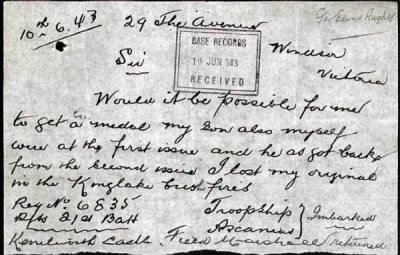 Geo Edward Hughes
10th 6. 43
29 The Avenue
BASE RECORDS
10 JUN 1943
RECEIVED
Windsor
Victoria
Sir
Would it be possible for me
to get a medal my Son also myself
were at the first issue and he as got back
from the second issue I lost my original
in the Kinglake bushfires
Reg No 6835
21st Batt
Troopship
Ascanius
Imbarked
Kenilworth Castle
Field Marshall returned